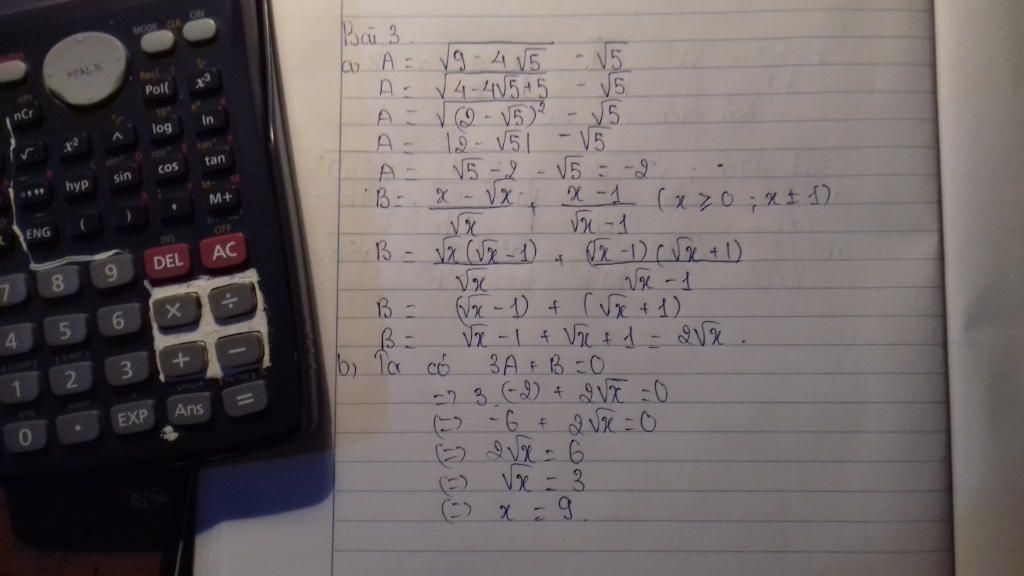 MODE CLR ON
Pol( x³
nCr
√ x² ^ log ln
hyp sin cos tan
ENG ( ) , M+
INS OFF
7 8 9 DEL AC
4 5 6 × ÷
1 2 3 + −
0 · EXP Ans =
Bài 3.
a, A = √(9 - 4√5) - √5
A = √(4 - 4√5 + 5) - √5
A = √((2 - √5)²) - √5
A = |2 - √5| - √5
A = √5 - 2 - √5 = -2
B = (x - √x)/√x + (x - 1)/(√x - 1) (x ≥ 0 ; x ± 1)
B = √x(√x - 1)/√x + (√x - 1)(√x + 1)/(√x - 1)
B = (√x - 1) + (√x + 1)
B = √x - 1 + √x + 1 = 2√x.
b, Ta có 3A + B = 0
=> 3.(-2) + 2√x = 0
(=) -6 + 2√x = 0
(=) 2√x = 6
(=) √x = 3
(=) x = 9.